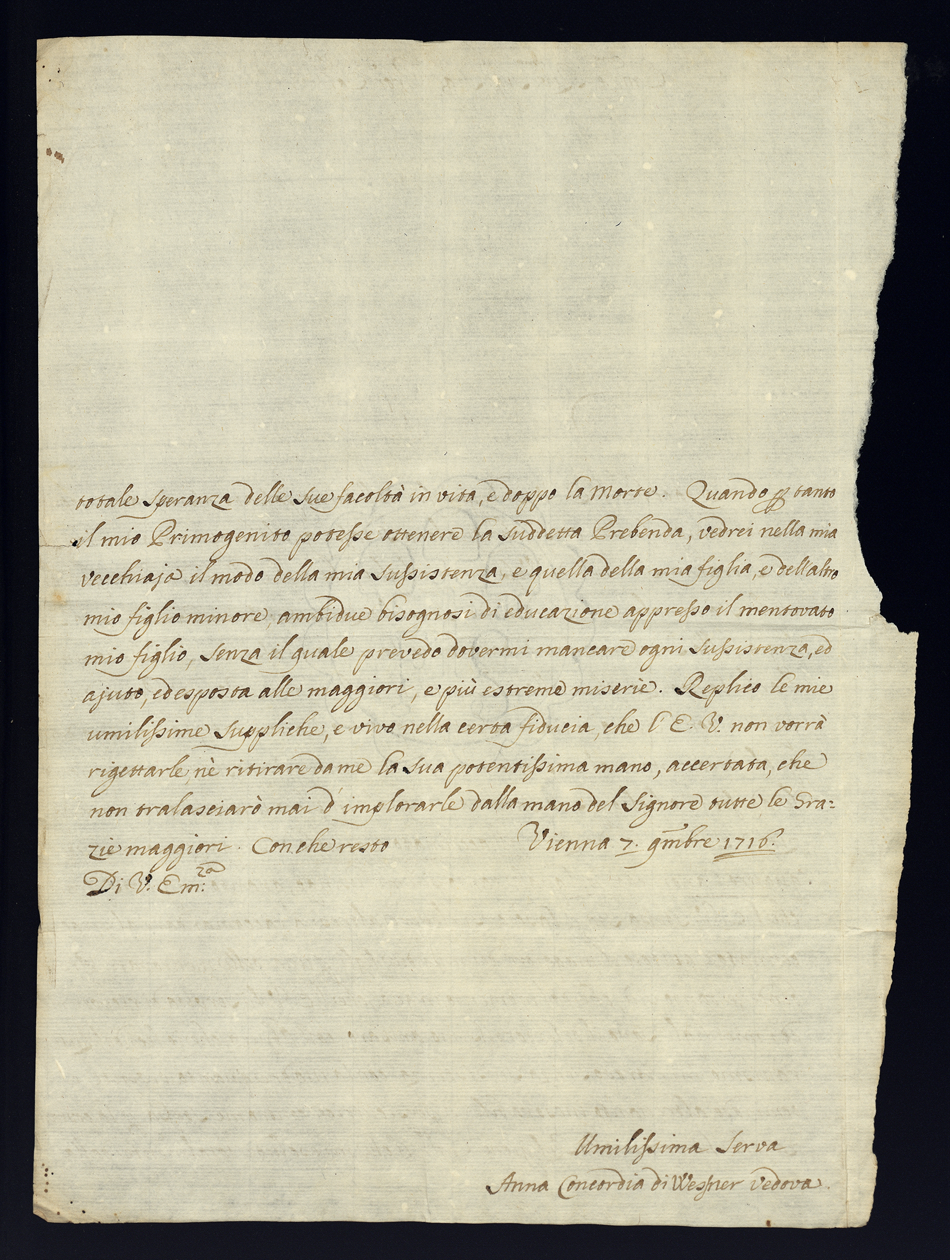 totale speranza delle sue facoltà in vita, e doppo la Morte. Quando ꝑ tanto
il mio Primogenito potesse ottenere la suddetta Prebenda, vedrei nella mia
vecchiaja il modo della mia sussistenza, e quella della mia figlia, e dell'altro
mio figlio minore, ambidue bisognosi di educazione appresso il mentovato
mio figlio, senza il quale prevedo dovermi mancare ogni sussistenza, ed
ajuto, ed esposta alle maggiori, e più estreme miserie. Replico le mie
umilissime suppliche, e vivo nella certa fiducia, che l'E. V. non vorrà
rigettarle nè ritirare da me la sua potentissima mano, accertata, che
non tralasciarò mai d'implorarle dalla mano del Signore tutte le Gra:
zie maggiori. Con che resto Vienna 7. 9mbre 1716.
Di V. Em:za
Umilissima Serva
Anna Concordia di Wesner Vedova.